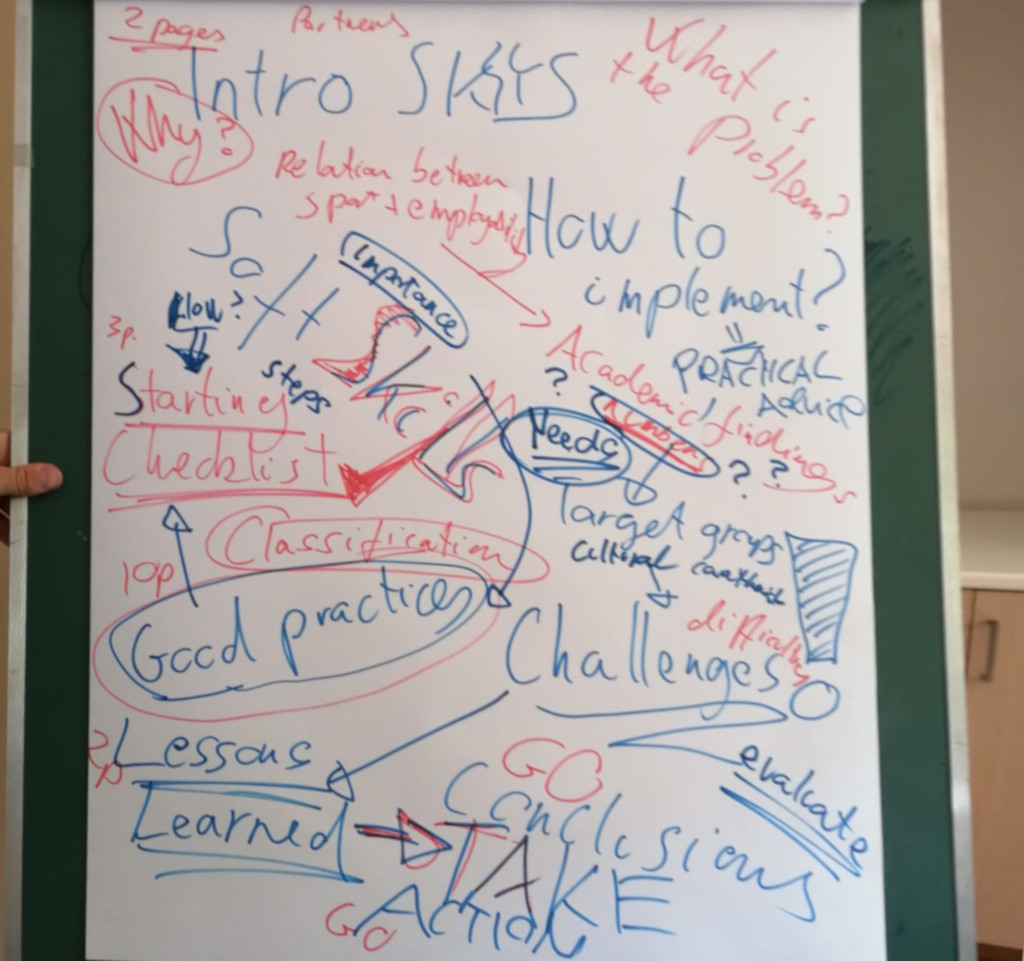 2 pages
Partners
What is
the problem?
Intro SKYS
Why?
Relation between
sport + employability
How to
implement?
Soft
Importance
How?
3p.
steps
PRACTICAL
ADVICE
Academic findings
?
Numbers
? ?
Starting
Checklist
Needs
Target groups
Cultural
Classification
10p
Good practices
difficulty
Challenges
2p
Lessons
Learned
GO
Conclusions
evaluate
TAKE
GO
ACTION